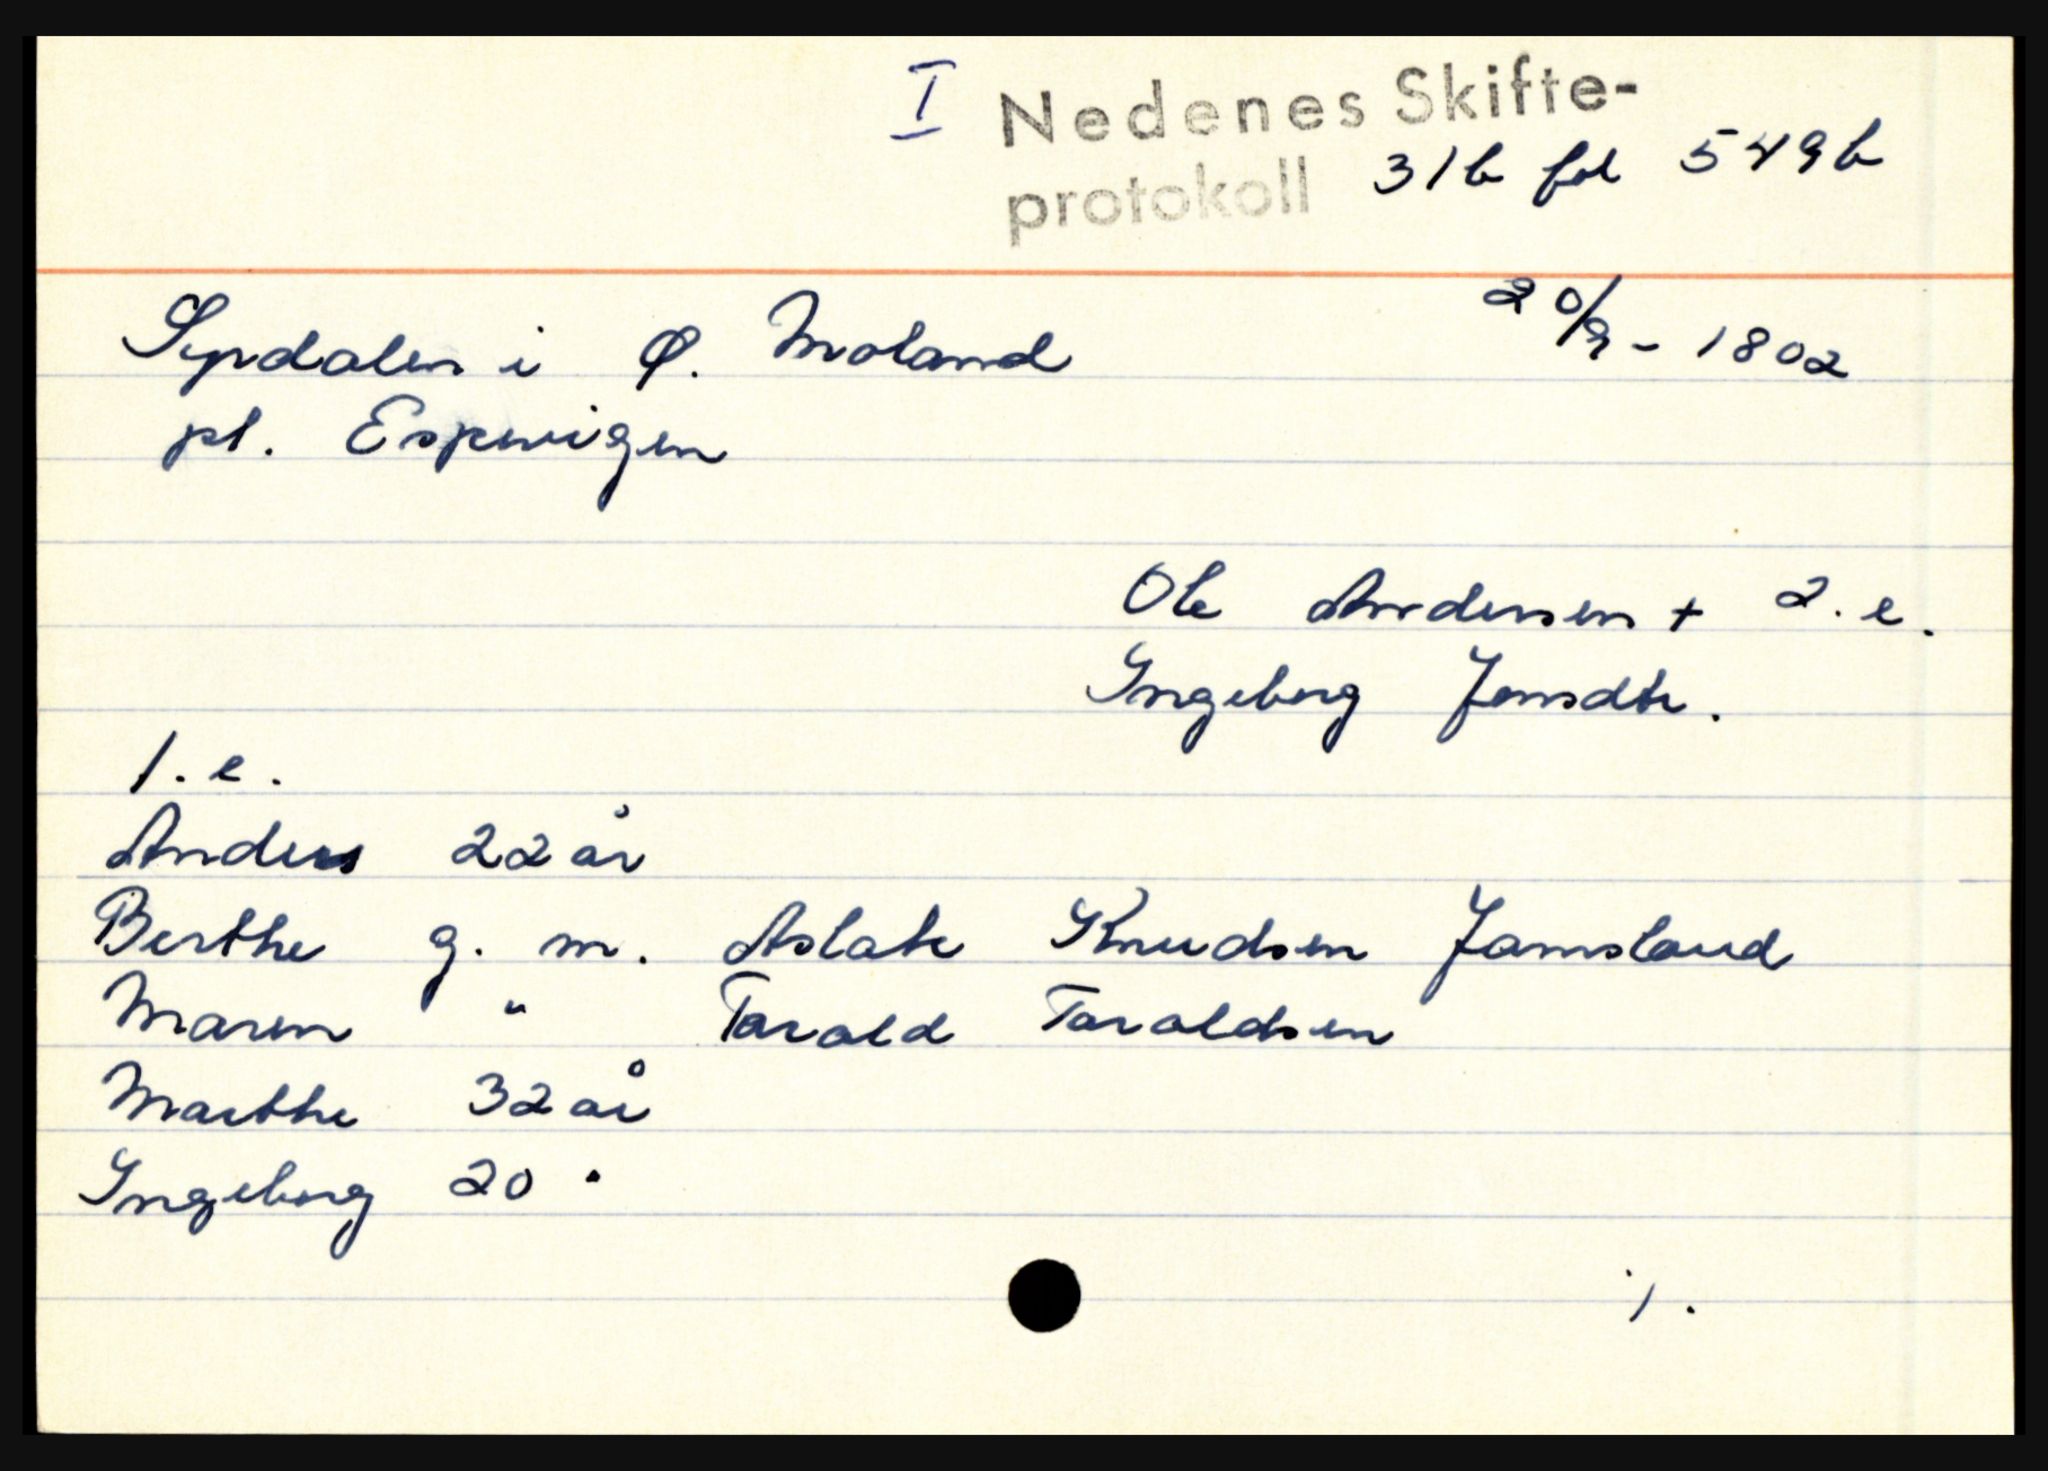 I Nedenes Skifte-
protokoll 31b fol 549b
20/9 - 1802
Syrdalen i Ø. Moland
pl. Espevigen
Ole Andersen + 2. e.
Ingeborg Jensdtr.
1. e.
Anders 22 år
Berthe g. m. Aslak Knudsen Jamsland
Maren " Tarald Taraldsen
Marthe 32 år
Ingeborg 20 "